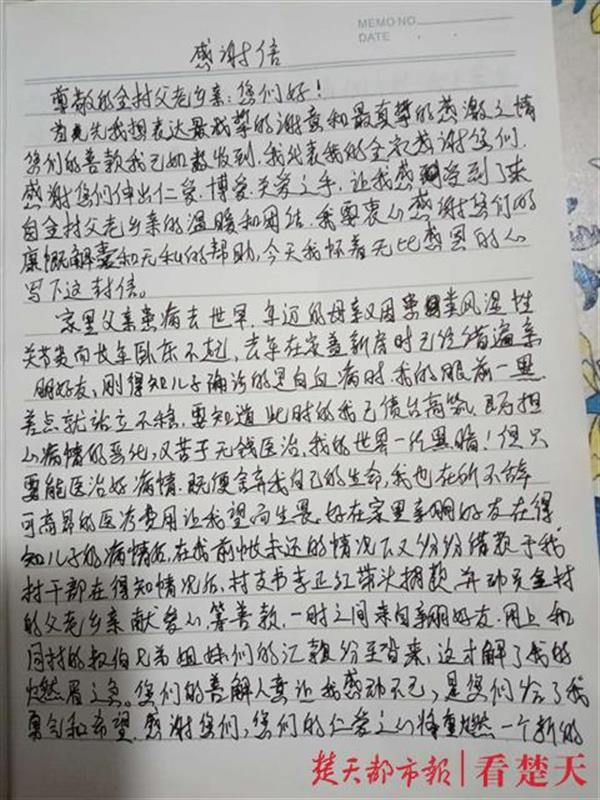 MEMO NO.
DATE
感谢信
尊敬的全村父老乡亲：您们好！
首先我想表达最诚挚的谢意和最真挚的感激之情
您们的善款我已如数收到，我代表我的全家感谢您们.
感谢您们伸出仁爱.博爱.关爱之手，让我感受到了来
自全村父老乡亲的温暖和团结，我要衷心感谢您们的
慷慨解囊和无私的帮助，今天我怀着无比感恩的心
写下这封信。
家里父亲患病去世早，年迈的母亲又因患类风湿性
关节炎而长年卧床不起，去年在家盖新房时已经借遍亲
朋好友，刚得知儿子确诊的是白血病时，我的眼前一黑
差点就站立不稳，要知道此时的我已债台高筑，既要担
心病情的恶化，又苦于无钱医治，我的世界一片黑暗！但只
要能医治好病情.既便舍弃我自己的生命，我也在所不辞
可高昂的医疗费用让我望而生畏。好在家里亲朋好友在得
知儿子的病情后，在我前帐未还的情况下又纷纷借款于我
村干部在得知情况后，村支书李正红带头捐款并动员全村
的父老乡亲献爱心，筹善款，一时之间来自亲朋好友.网上和
同村的叔伯兄弟姐妹们的汇款纷至沓来，这才解了我的
燃眉之急。您们的善解人意让我感动不已，是您们给了我
勇气和希望.感谢您们，您们的仁爱之心将重燃一个新的
楚天都市报|看楚天